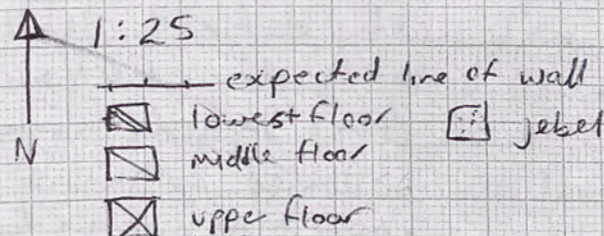 1:25
expected line of wall
lowest floor
jebel
N
middle floor
upper floor